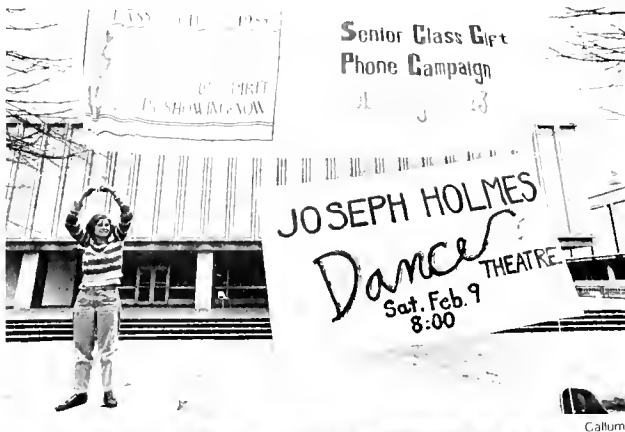 CLASS OF 1985
SPIRIT
IS SHOWING NOW
Senior Class Gift
Phone Campaign
JOSEPH HOLMES
Dance THEATRE
Sat. Feb. 9
8:00
Callum